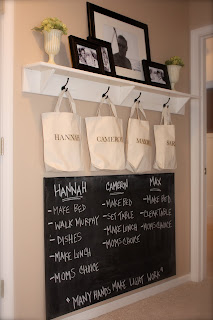 HANNAH
CAMERON
HANNAH
- MAKE BED
- WALK MURPHY
- DISHES
- MAKE LUNCH
- MOM'S CHOICE
CAMERON
- MAKE BED
- SET TABLE
- MAKE LUNCH
- MOM'S CHOICE
MAX
- MAKE BED
- CLEAR TABLE
- MOM'S CHOICE
"MANY HANDS MAKE LIGHT WORK"